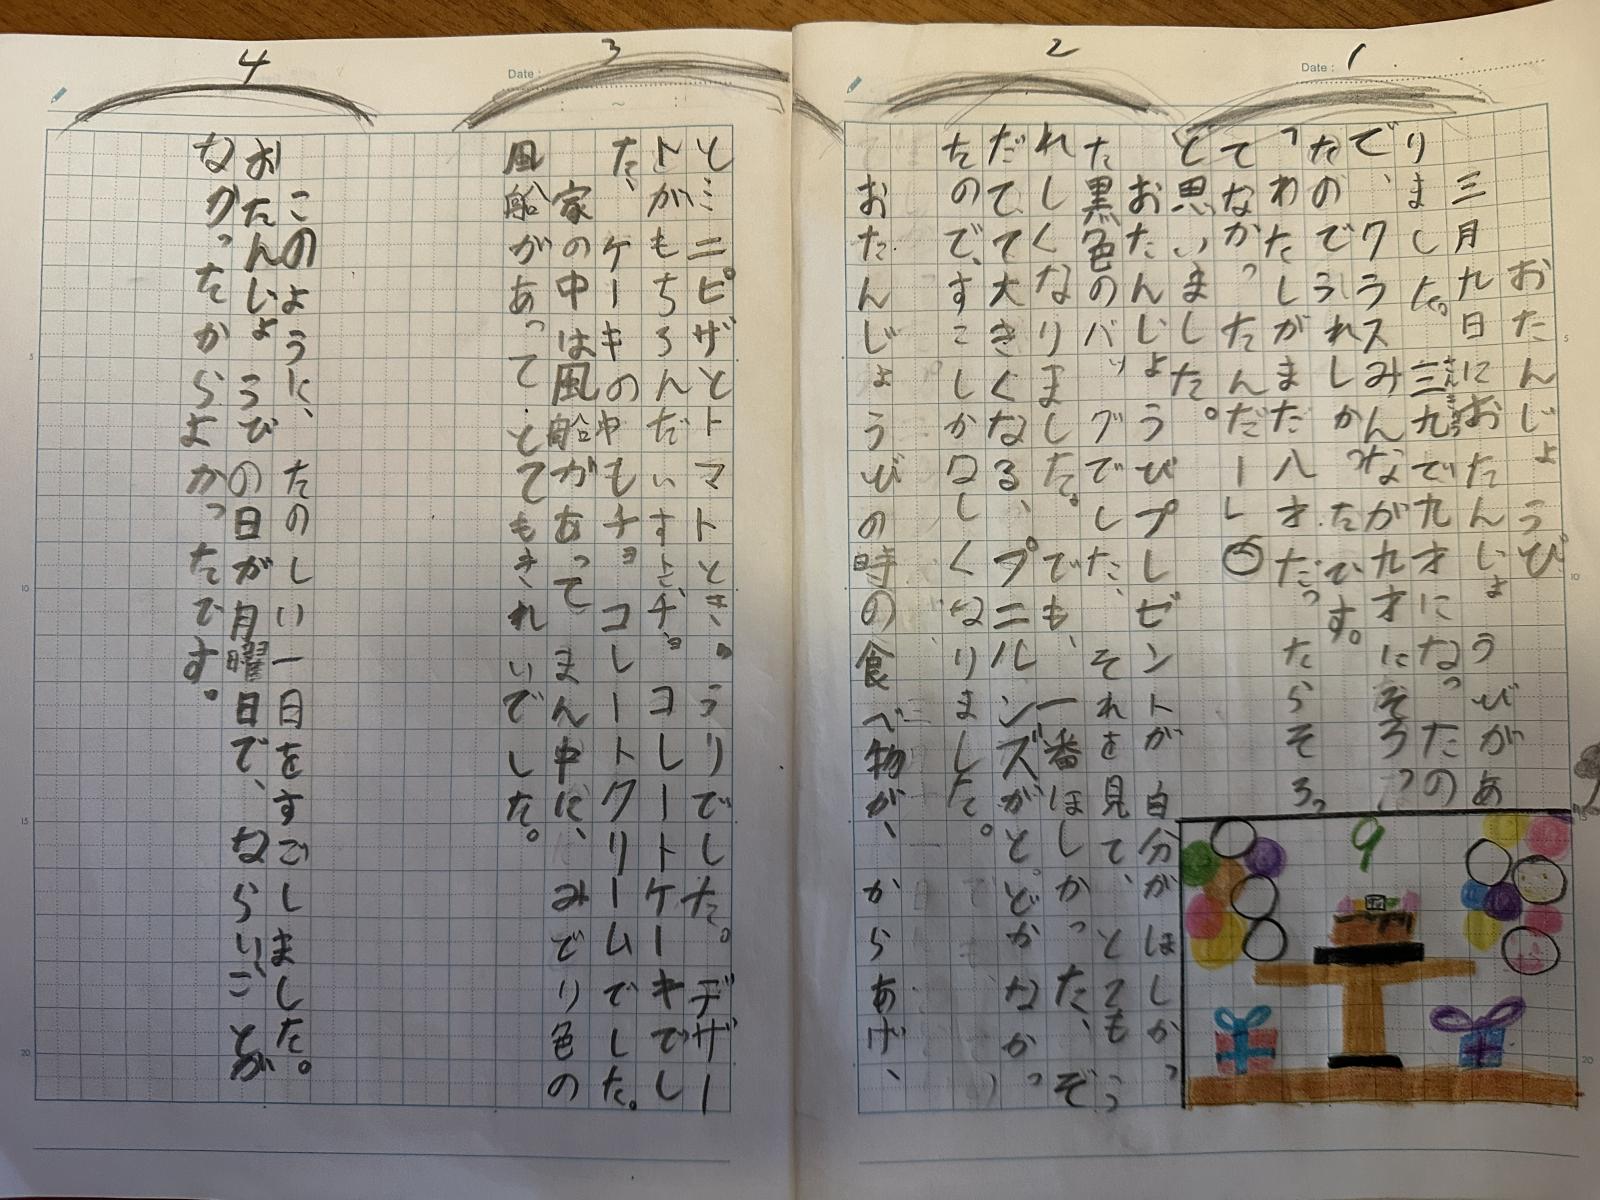 1
2
3
4
Date :
Date :
おたんじょうび
三月九日におたんじょうびがあ
りました。三九で九才になったの
さんきゅう
で、クラスみんなが九才にそろっ
たのでうれしかったです。
わたしがまだ八才だったらそろっ
てなかったんだー
と思いました。
おたんじょうびプレゼントが自分がほしかっ
た黒色のバッグでした。それを見て、とてもう
れしくなりました。でも、一番ほしかった、ぞ
だてて大きくなる、プニルンズがとどかなかっ
たので、すこしかなしくなりました。
おたんじょうびの時の食べ物が、からあげ、
とミニピザとトマトときゅうりでした。デザー
トがもちろんだいすきチョコレートケーキでし
た、ケーキの中もチョコレートクリームでした。
家の中は風船があってまん中に、みどり色の
風船があって、とてもきれいでした。
このように、たのしい一日をすごしました。
おたんじょうびの日が月曜日で、ならいごとが
なかったからよかったです。
9
5
10
15
20
5
10
15
20